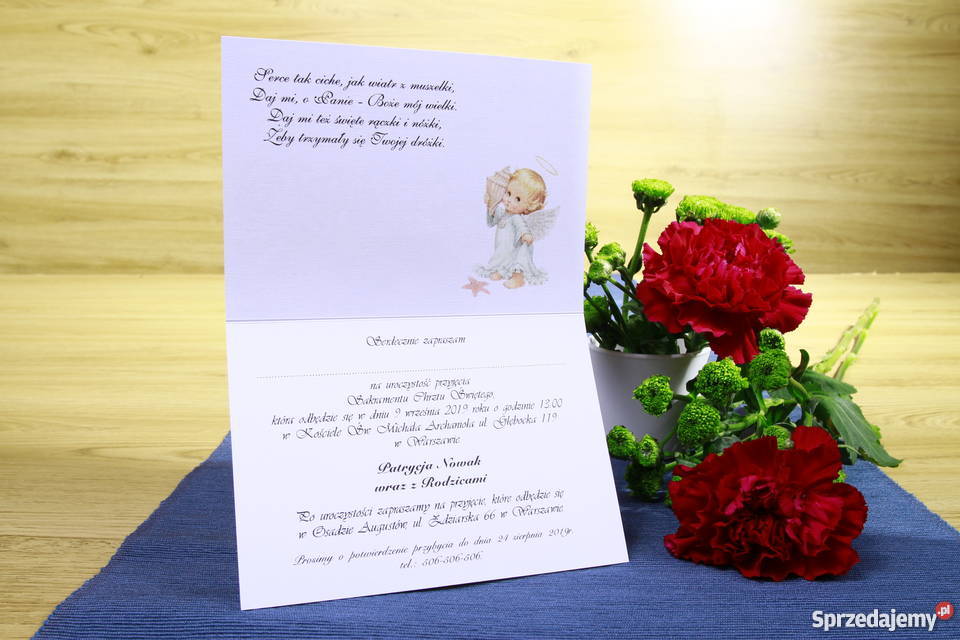 Serce tak ciche, jak wiatr z muszelki,
Daj mi, o Panie - Boże mój wielki.
Daj mi też święte rączki i nóżki,
Żeby trzymały się Twojej dróżki.
Serdecznie zapraszam
na uroczystość przyjęcia
Sakramentu Chrztu Świętego,
która odbędzie się w dniu 9 września 2019 roku o godzinie 12:00
w Kościele Św. Michała Archanioła ul. Głębocka 119
w Warszawie.
Patrycja Nowak
wraz z Rodzicami
Po uroczystości zapraszamy na przyjęcie, które odbędzie się
w Osadzie Augustów, ul. Zdziarska 66 w Warszawie.
Prosimy o potwierdzenie przybycia do dnia 24 sierpnia 2019r.
tel.: 506-506-506.
Sprzedajemy.pl